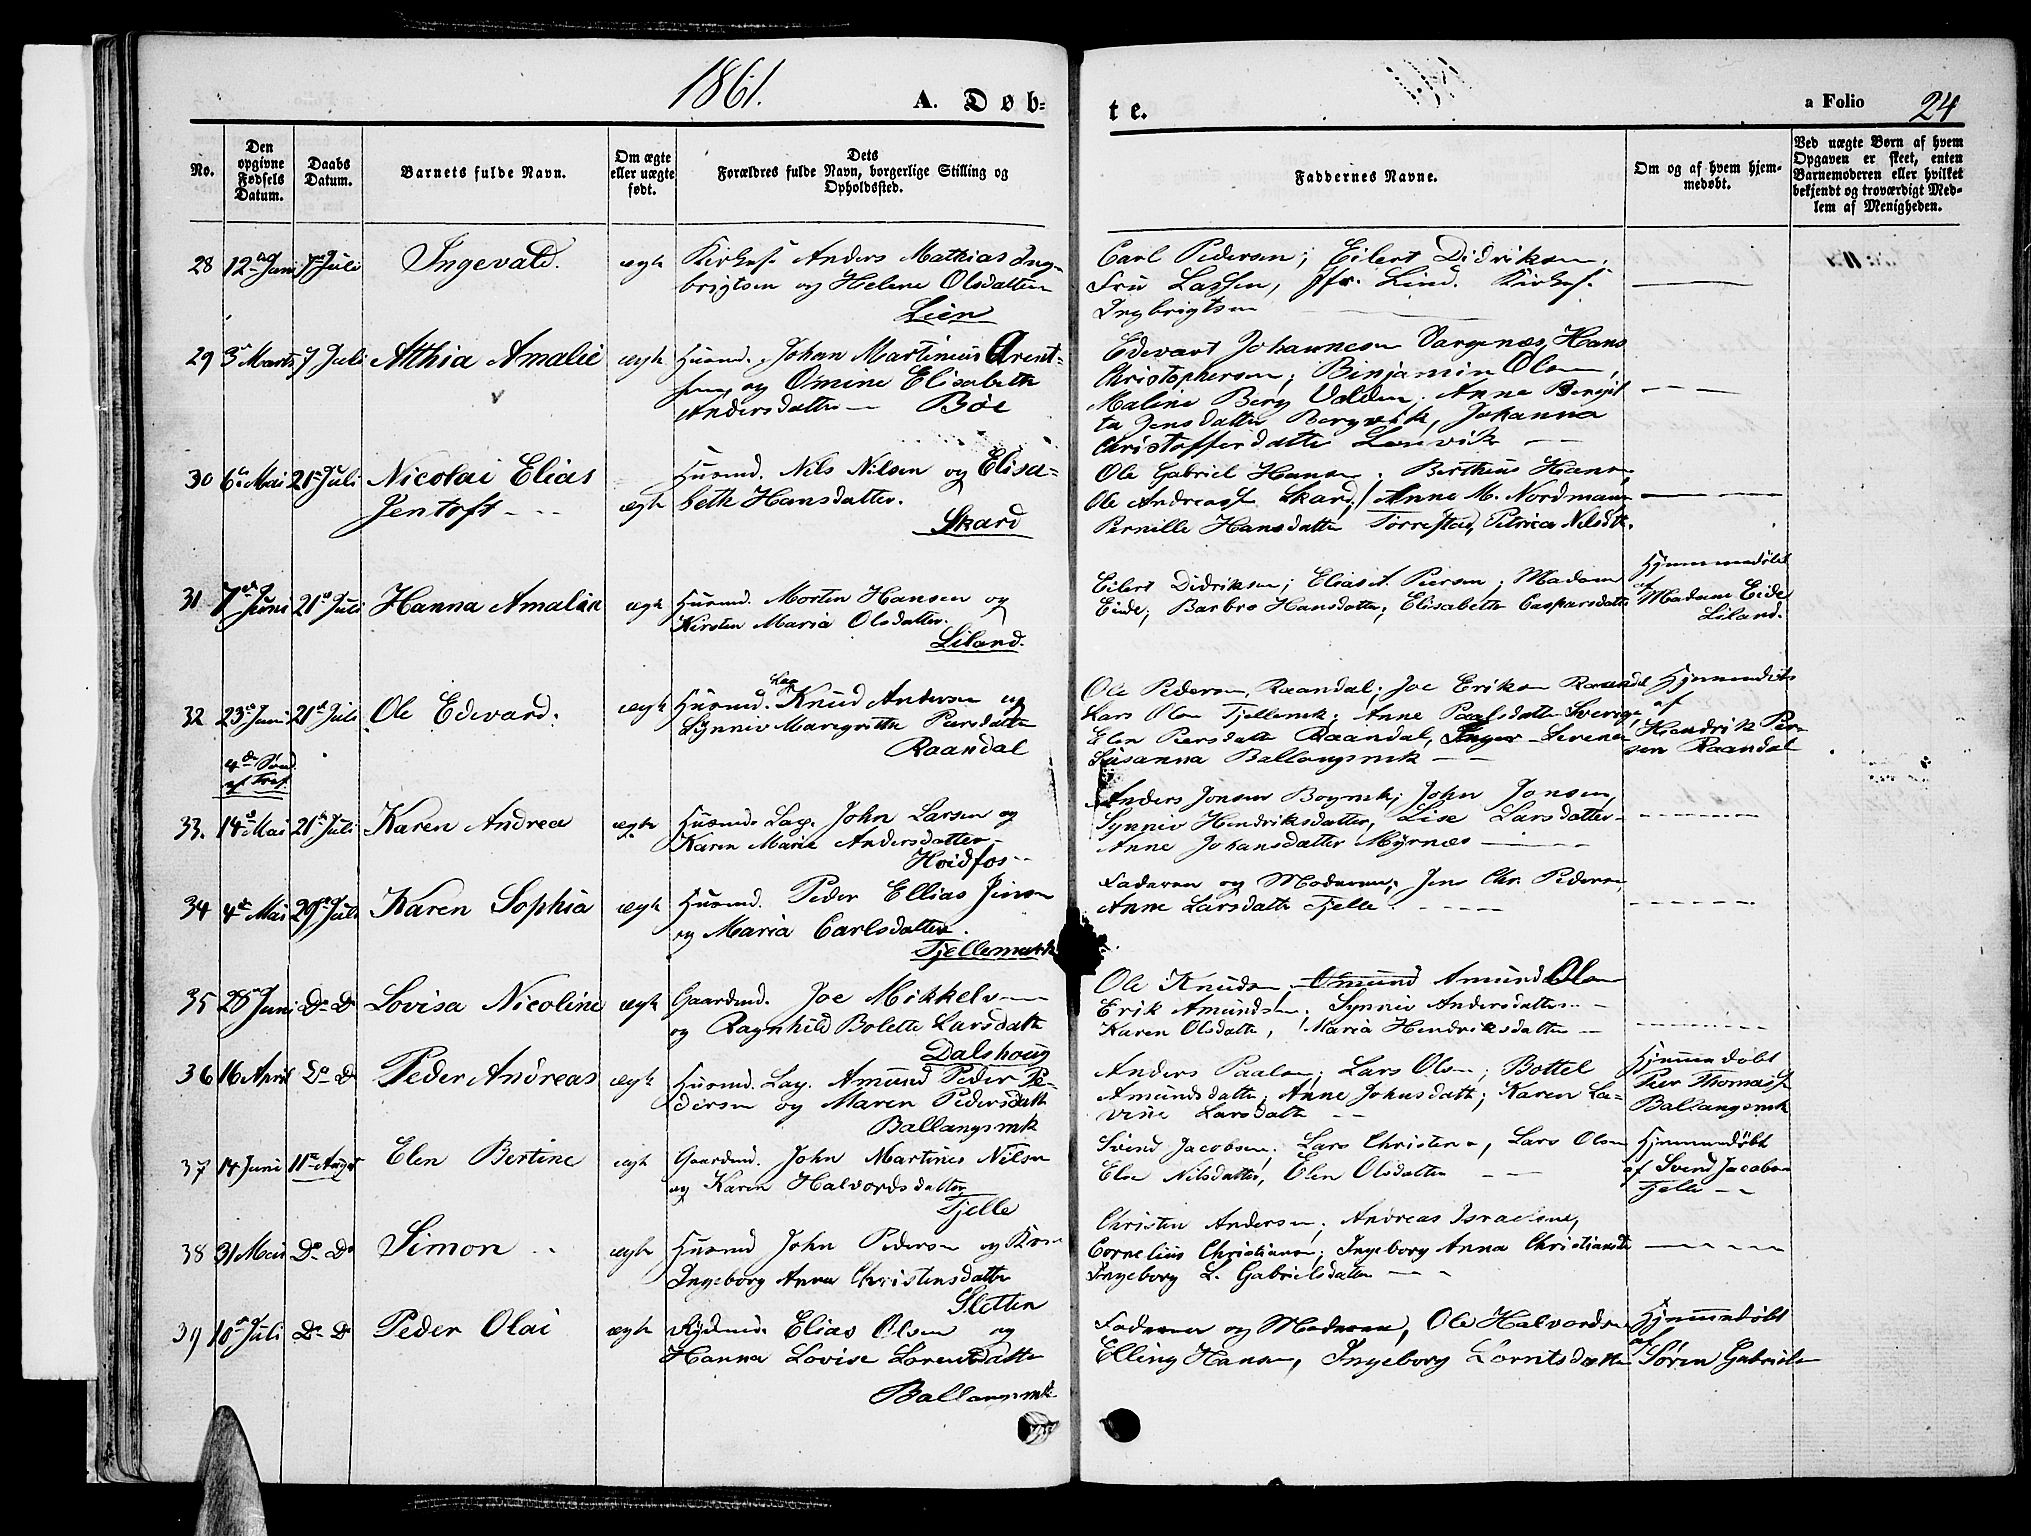 1861.
A. Døb-
te.
a Folio 24
No.
Den
opgivne
Fødsels
Datum.
Daabs
Datum.
Barnets fulde Navn.
Om ægte
eller uægte
født.
Dets
Forældres fulde Navn, borgerlige Stilling og
Opholdssted.
Faddernes Navne.
Om og af hvem hjem-
medøbt.
Ved uægte Børn af hvem
Opgaven er skeet, enten
Barnemoderen eller hvilket
bekjendt og troværdigt Med-
lem af Menigheden.
28 12te Juni 7de Juli Ingevald. ægte
Kirkes. Anders Mathias Inge-
brigtsen og Helene Olsdatter
Lien
Carl Pedersen; Eilert Didriksen;
Fru Lassen, Jfr. Lind. Kirkes.
Ingbrigtsen
29 3de Marts 7 Juli Atthia Amalie ægte
Husmd. Johan Martinius Arent-
sen og Omine Elisabeth
Andersdatter Bøe
Edevart Johannesen Vargenæs, Hans
Christophersen; Binjamin Olsen,
Maline Berg Valden. Anne Bergit
ta Jensdatter Bergvik, Johanna
Christofferdatter Lenvik
30 6te Mai 21de Juli Nicolai Elias
Jentoft ægte
Husmd. Nils Nilsen og Elisa-
beth Hansdatter.
Skard
Ole Gabriel Hansen; Berthius Hansen
Ole Andreas Skard; Anne M. Nordmann
Pernille Hansdatter Torrestad, Petrica Nilsdt.
31 7de Juni 21de Juli Hanna Amalia ægte
Husmd. Morten Hansen og
Kirsten Maria Olsdatter.
Liland.
Eilert Didriksen; Elias A. Piersen; Madam
Eide; Barbro Hansdatter; Elisabeth Caspersdatter
Hjemmedøbt
af
Madame Eide
Liland.
32 23de Juni 21de Juli Ole Edevard. ægte
Husmd. Lap Knud Andersen og
Synniv Maregrithe Piersdatter
Raandal
Ole Pedersen Raandal; Joe Eriksen Raandal
Lars Olsen Tjellemrk; Anne Paalsdatter Sverige,
Elen Piersdatter Raandal, Inger Serene
Susanna Ballangsmrk
Hjemmedøbt
af
Hendrik Per-
sen Raandal
4de Sønd.
af Tref.
33. 14de Mai 21de Juli Karen Andrea ægte
Husmd. Lap. John Larsen og
Karen Marie Andersdatter
Hvidfos
Anders Jonsen Boymrk; John Jonsen,
Synniv Hendriksdatter, Lise Larsdatter
Anne Johansdatter Myrnæs
34 4de Mai 29de Juli Karen Sophia ægte
Husmd. Peder Ellias Jensen
og Maria Carlsdatter.
Tjellemark
Faderen og Moderen; Jens Chr. Pedersen,
Anne Larsdatter Tjelle
35 28de Juni Do Do Lovisa Nicoline ægte
Gaardmd. Joe Mikkelsen
og Ragnhild Bolette Larsdatter
Dalshoug
Ole Knudsen, Amund Amund Olsen
Erik Amundsen, Synniv Andersdatter
Karen Olsdatter, Maria Hendriksdatter
36 16 April Do Do Peder Andreas ægte
Husmd. Lap. Amund Peder Pe-
dersen og Maren Pedersdatter
Ballangsmrk
Anders Paalsen; Lars Olsen; Bottel
Amundsdatter; Anne Johnsdatter; Karen La-
vine Larsdatter
Hjemmedøbt
Peer Thomass.
Ballangsmrk
37 14 Juni 11te August Elen Bertine ægte
Gaardmd. John Martines Nilsen
og Karen Halvordsdatter
Tjelle
Svend Jacobsen; Lars Christensen, Lars Olsen
Else Nilsdatter, Elen Olsdatter
Hjemmedøbt
af Svend Jacobsen
Tjelle
38 31 Mai Do Do Simon ægte
Husmd John Pedersen og Kone
Ingeborg Anna Christensdatter
Sletten
Christen Andersen; Andreas Israelsen,
Cornelius Christiansen; Ingeborg Anna Christiansdt
Ingeborg L. Gabrielsdatter
39 10de Juli Do Do Peder Olai ægte
Rydmd. Elias Olsen og
Hanna Lovise Lorentsdatter
Ballangsmrk
Faderen og Moderen, Ole Halvordsen
Elling Hansen, Ingeborg Lorntsdatter
Hjemmedøbt
af
Søren Gabrielsen